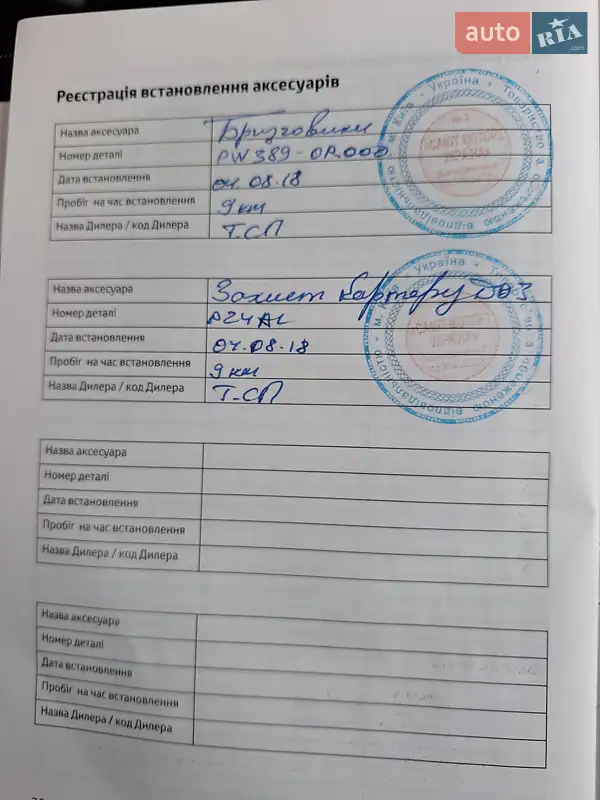 auto RIA .com
Реєстрація встановлення аксесуарів
Назва аксесуара Бризговики
Номер деталі PW389-0R000
Дата встановлення 04.08.18
Пробіг на час встановлення 9 км
Назва Дилера / код Дилера Т.СП
Назва аксесуара Захист картеру
Номер деталі
Дата встановлення 04.08.18
Пробіг на час встановлення 9 км
Назва Дилера / код Дилера Т-СП
Назва аксесуара
Номер деталі
Дата встановлення
Пробіг на час встановлення
Назва Дилера / код Дилера
Назва аксесуара
Номер деталі
Дата встановлення
Пробіг на час встановлення
Назва Дилера / код Дилера